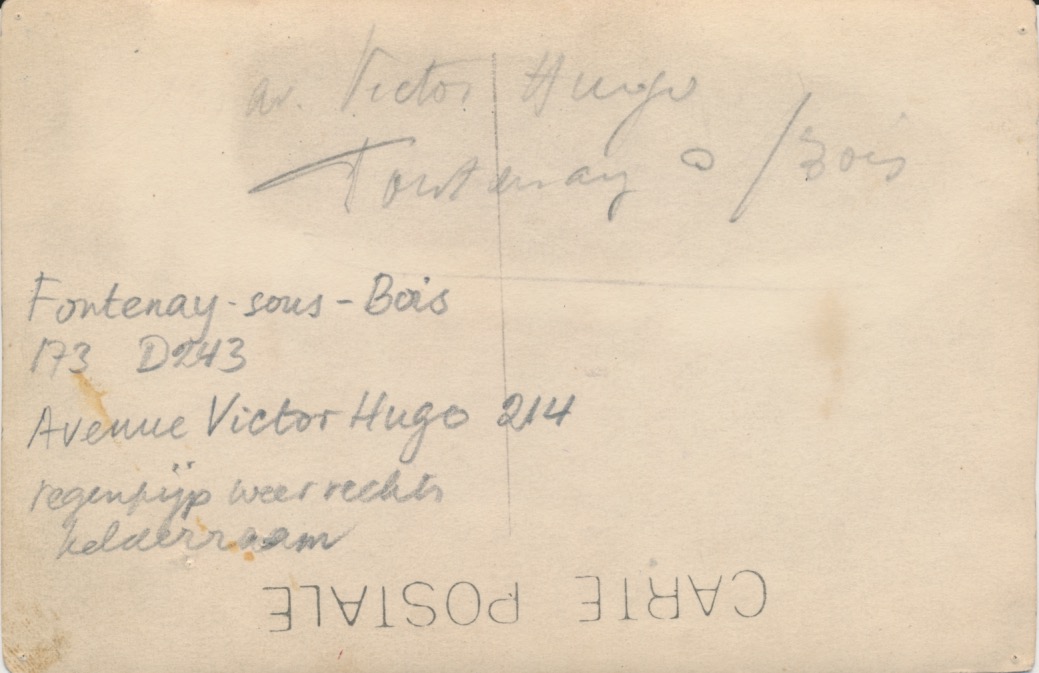 av. Victor Hugo
Fontenay s/Bois
Fontenay-sous-Bois
173 D243
Avenue Victor Hugo 214
regenpijp weer rechts
kelderraam
CARTE POSTALE